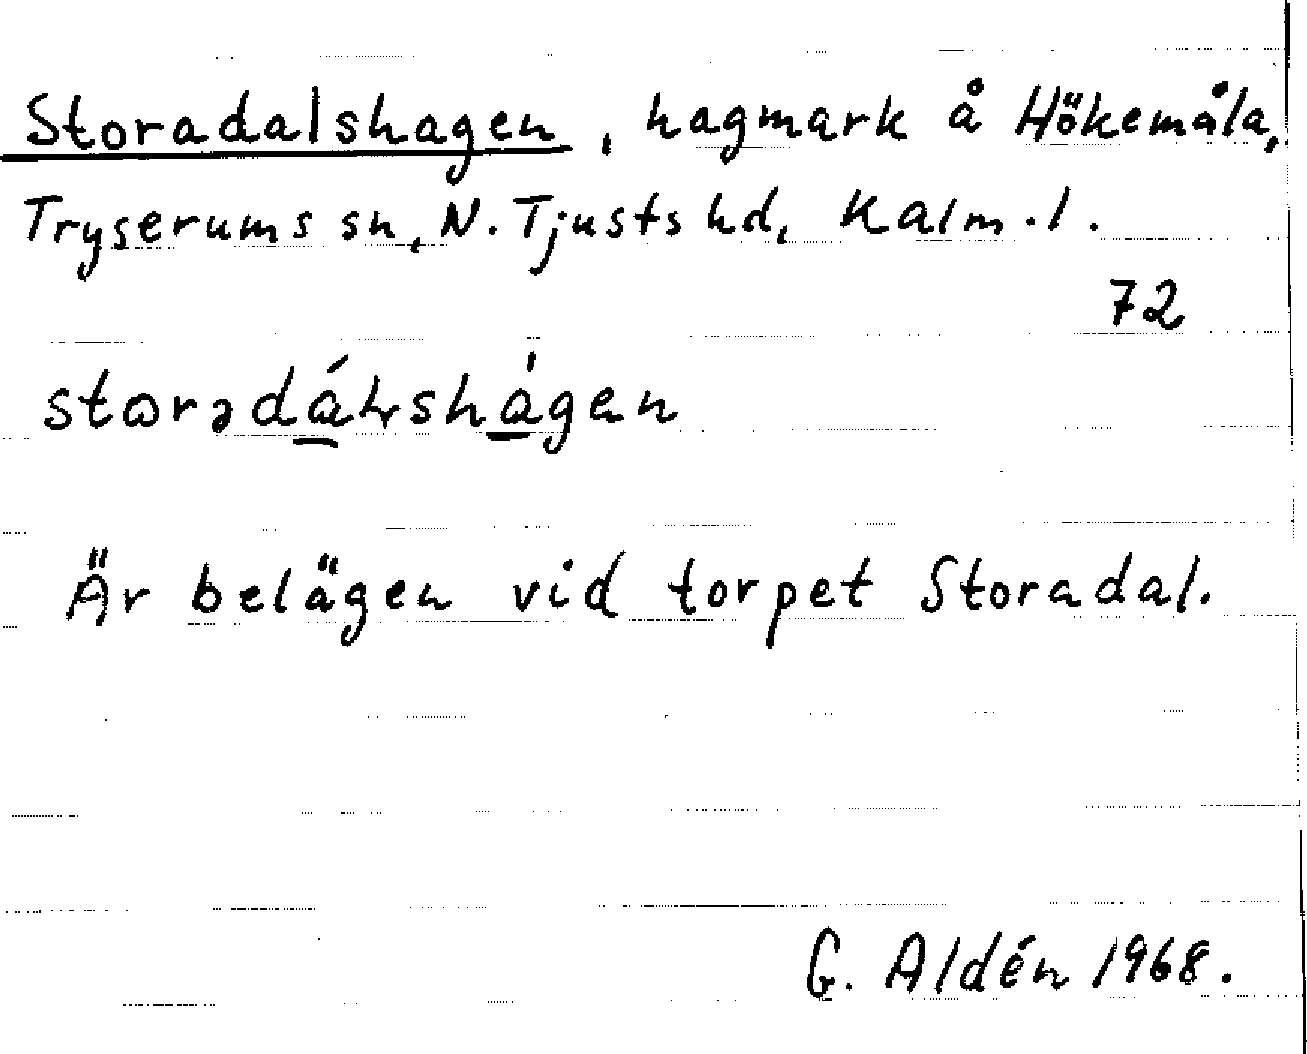 Storadalshagen, hagmark å Hökemåla,
Tryserums sn, N. Tjusts hd, Kalm. l.
72
Är belägen vid torpet Storadal.
G. Aldén 1968.